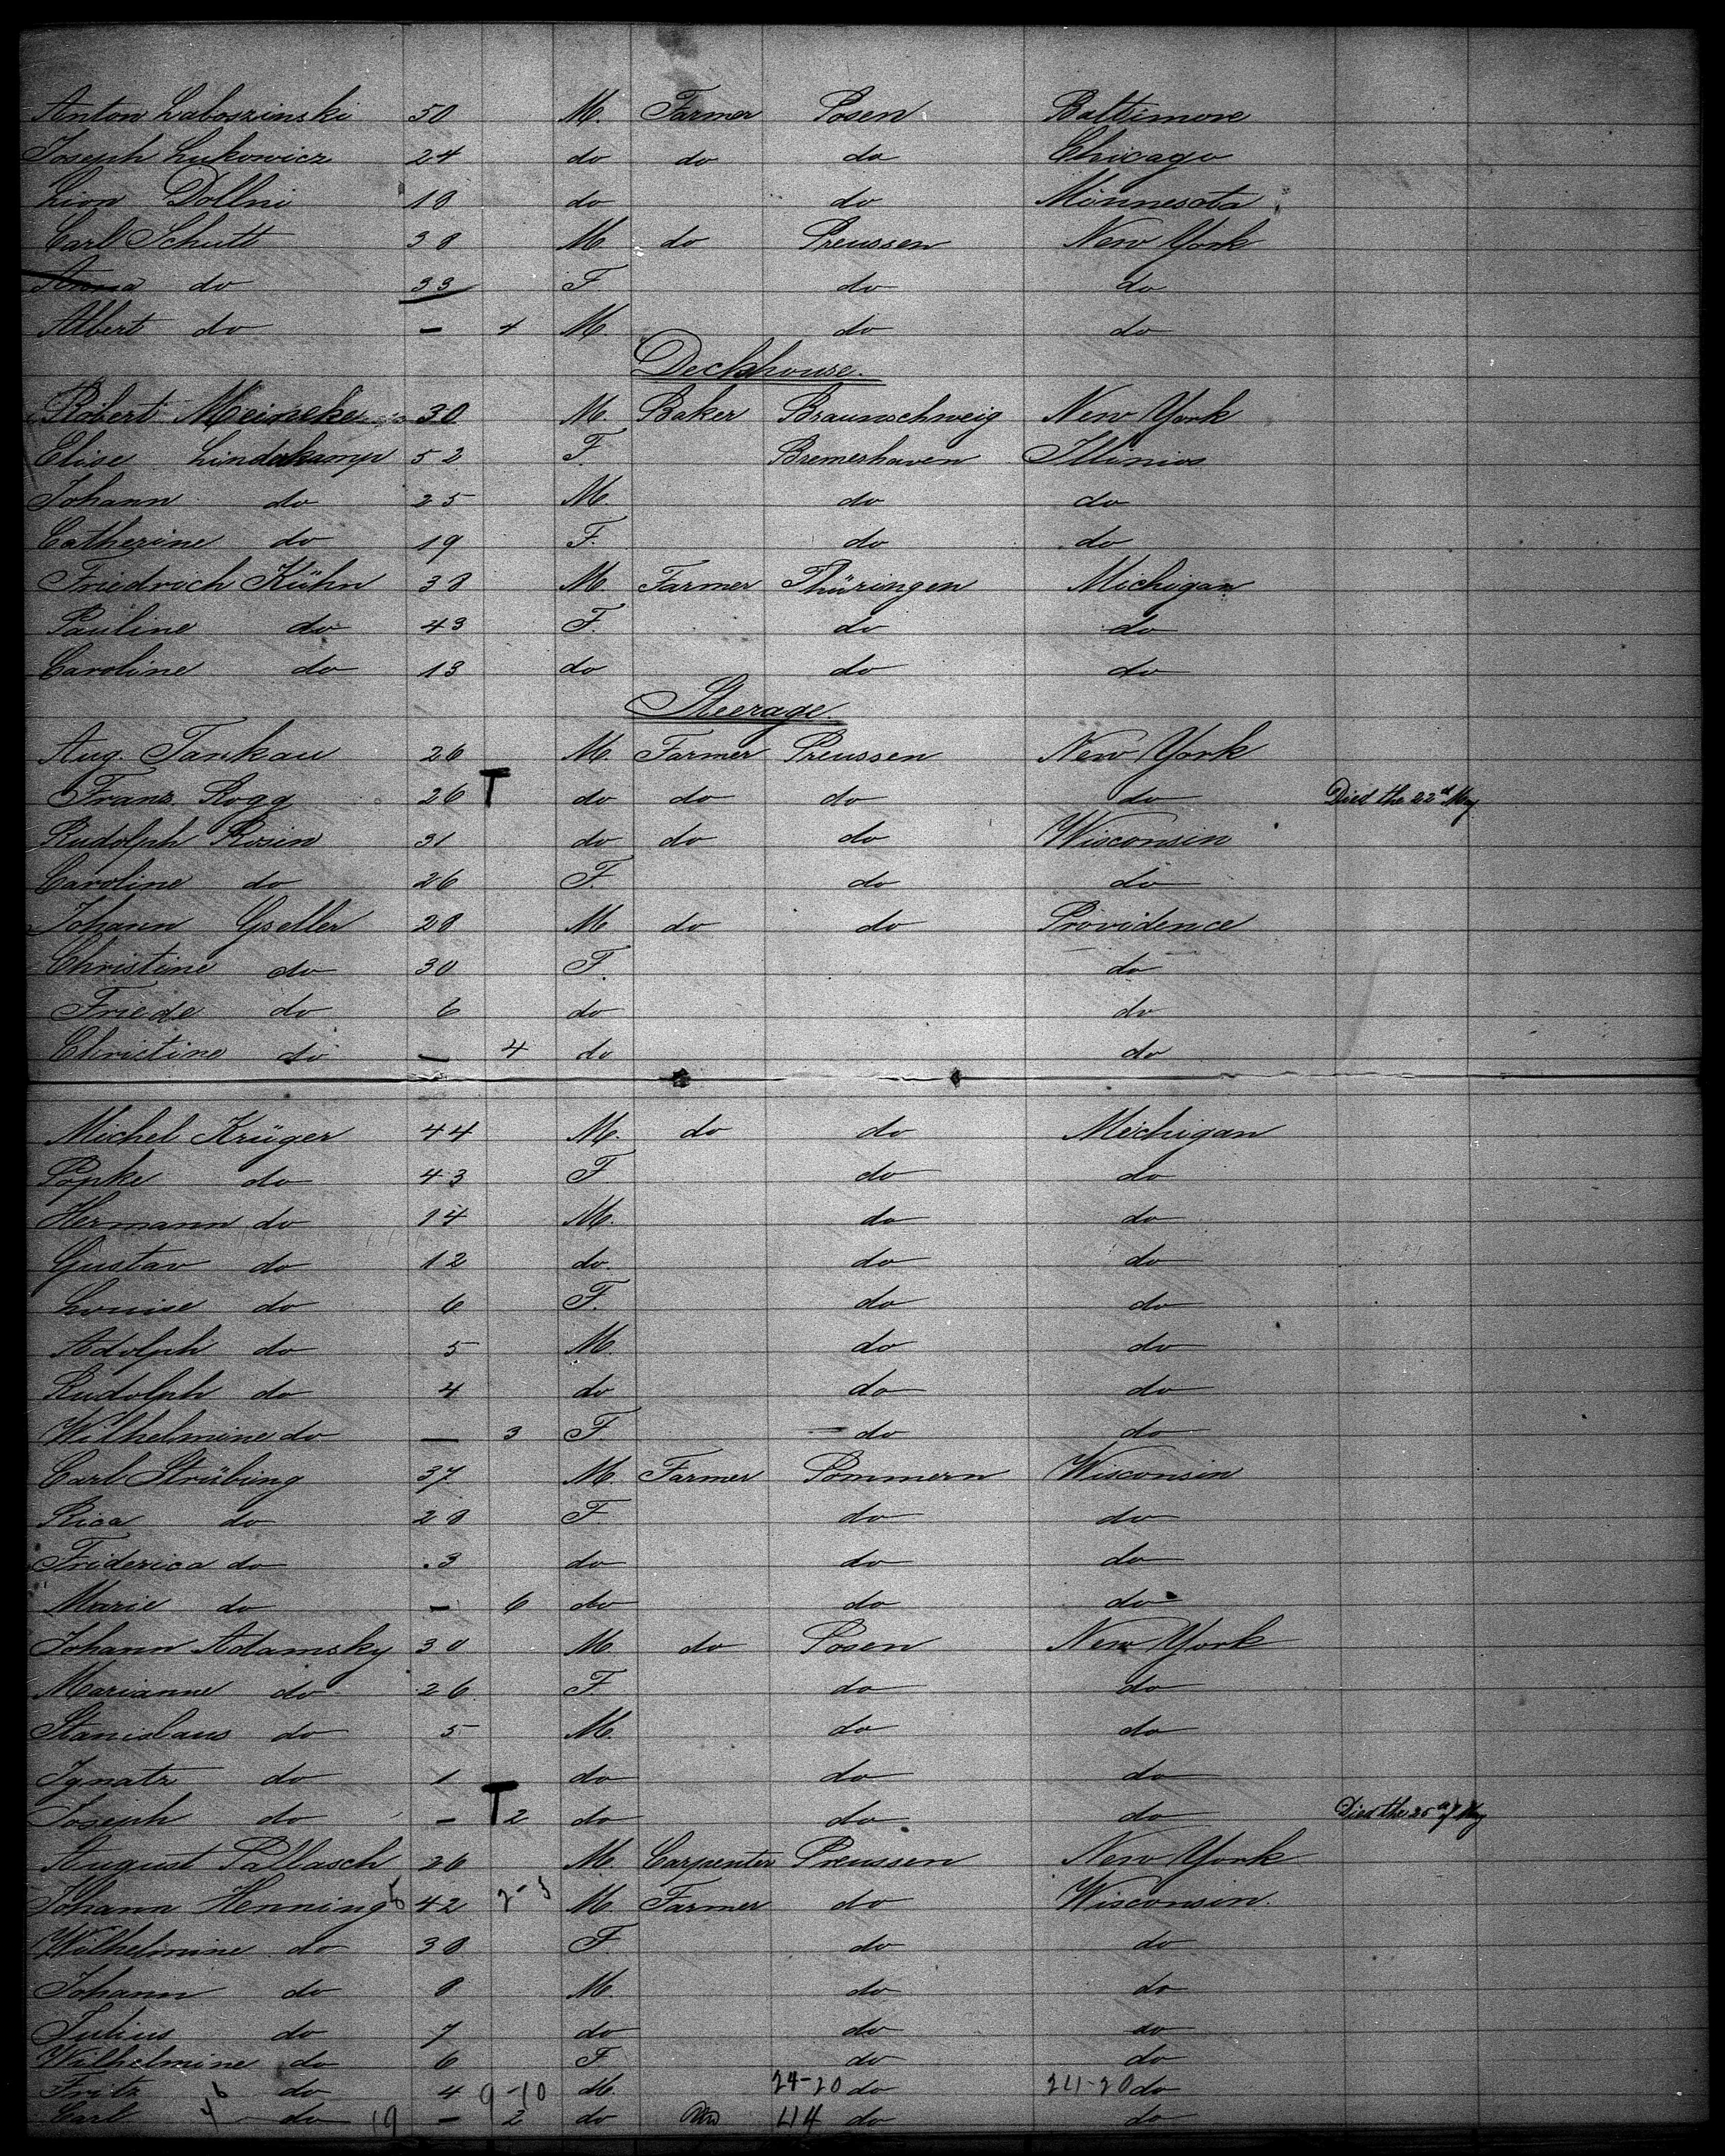 Anton Laboszinski 50 M. Farmer Posen Baltimore
Joseph Lukowicz 24 do do do Chicago
Lion Dollni 18 do do Minnesota
Carl Schutt 38 M do Preussen New York
Anna do 33 F do do
Albert do — 4 M. do do
Deckhouse.
Robert Meineke 30 M. Baker Braunschweig New York
Elise Lindekamp 52 F. Bremerhaven Illinios
Johann do 25 M. do do
Catherine do 19 F. do do
Friedrich Kühn 38 M. Farmer Thüringen Michigan
Pauline do 43 F. do do
Caroline do 13 do do do
Steerage.
Aug. Tankau 26 M. Farmer Preussen New York
Franz Rogg 26 T do do do do Died the 22nd May
Rudolph Rosin 31 do do do Wisconsin
Caroline do 26 F. do do
Johann Gseller 28 M do do Providence
Christine do 30 F. do
Friede do 6 do do
Christine do — 4 do do
Michel Krüger 44 M. do do Michigan
Popke do 43 F do do
Hermann do 14 M. do do
Gustav do 12 do. do do
Louise do 6 F. do do
Adolph do 5 M. do do
Rudolph do 4 do do do
Wilhelmine do — 3 F do do
Carl Strübing 37 M. Farmer Pommern Wisconsin
Rica do 28 F do do
Friderica do 3 do do do
Marie do — 6 do do do
Johann Adamsky 30 M. do Posen New York
Marianne do 26 F. do do
Stanislaus do 5 M. do do
Ignatz do 1 do do do
Joseph do — T 2 do do do Died the 25th of May
August Pallasch 26 M. Carpenter Preussen New York
Johann Henning 5 42 2-3 M Farmer do Wisconsin.
Wilhelmine do 38 F. do do
Johann do 8 M. do do
Julius do 7 do do do
Wilhelmine do 6 F do do
Fritz do 4 9-10 M. 24-20 do 24-20 do
Carl do 19 — 2 do 44 do do